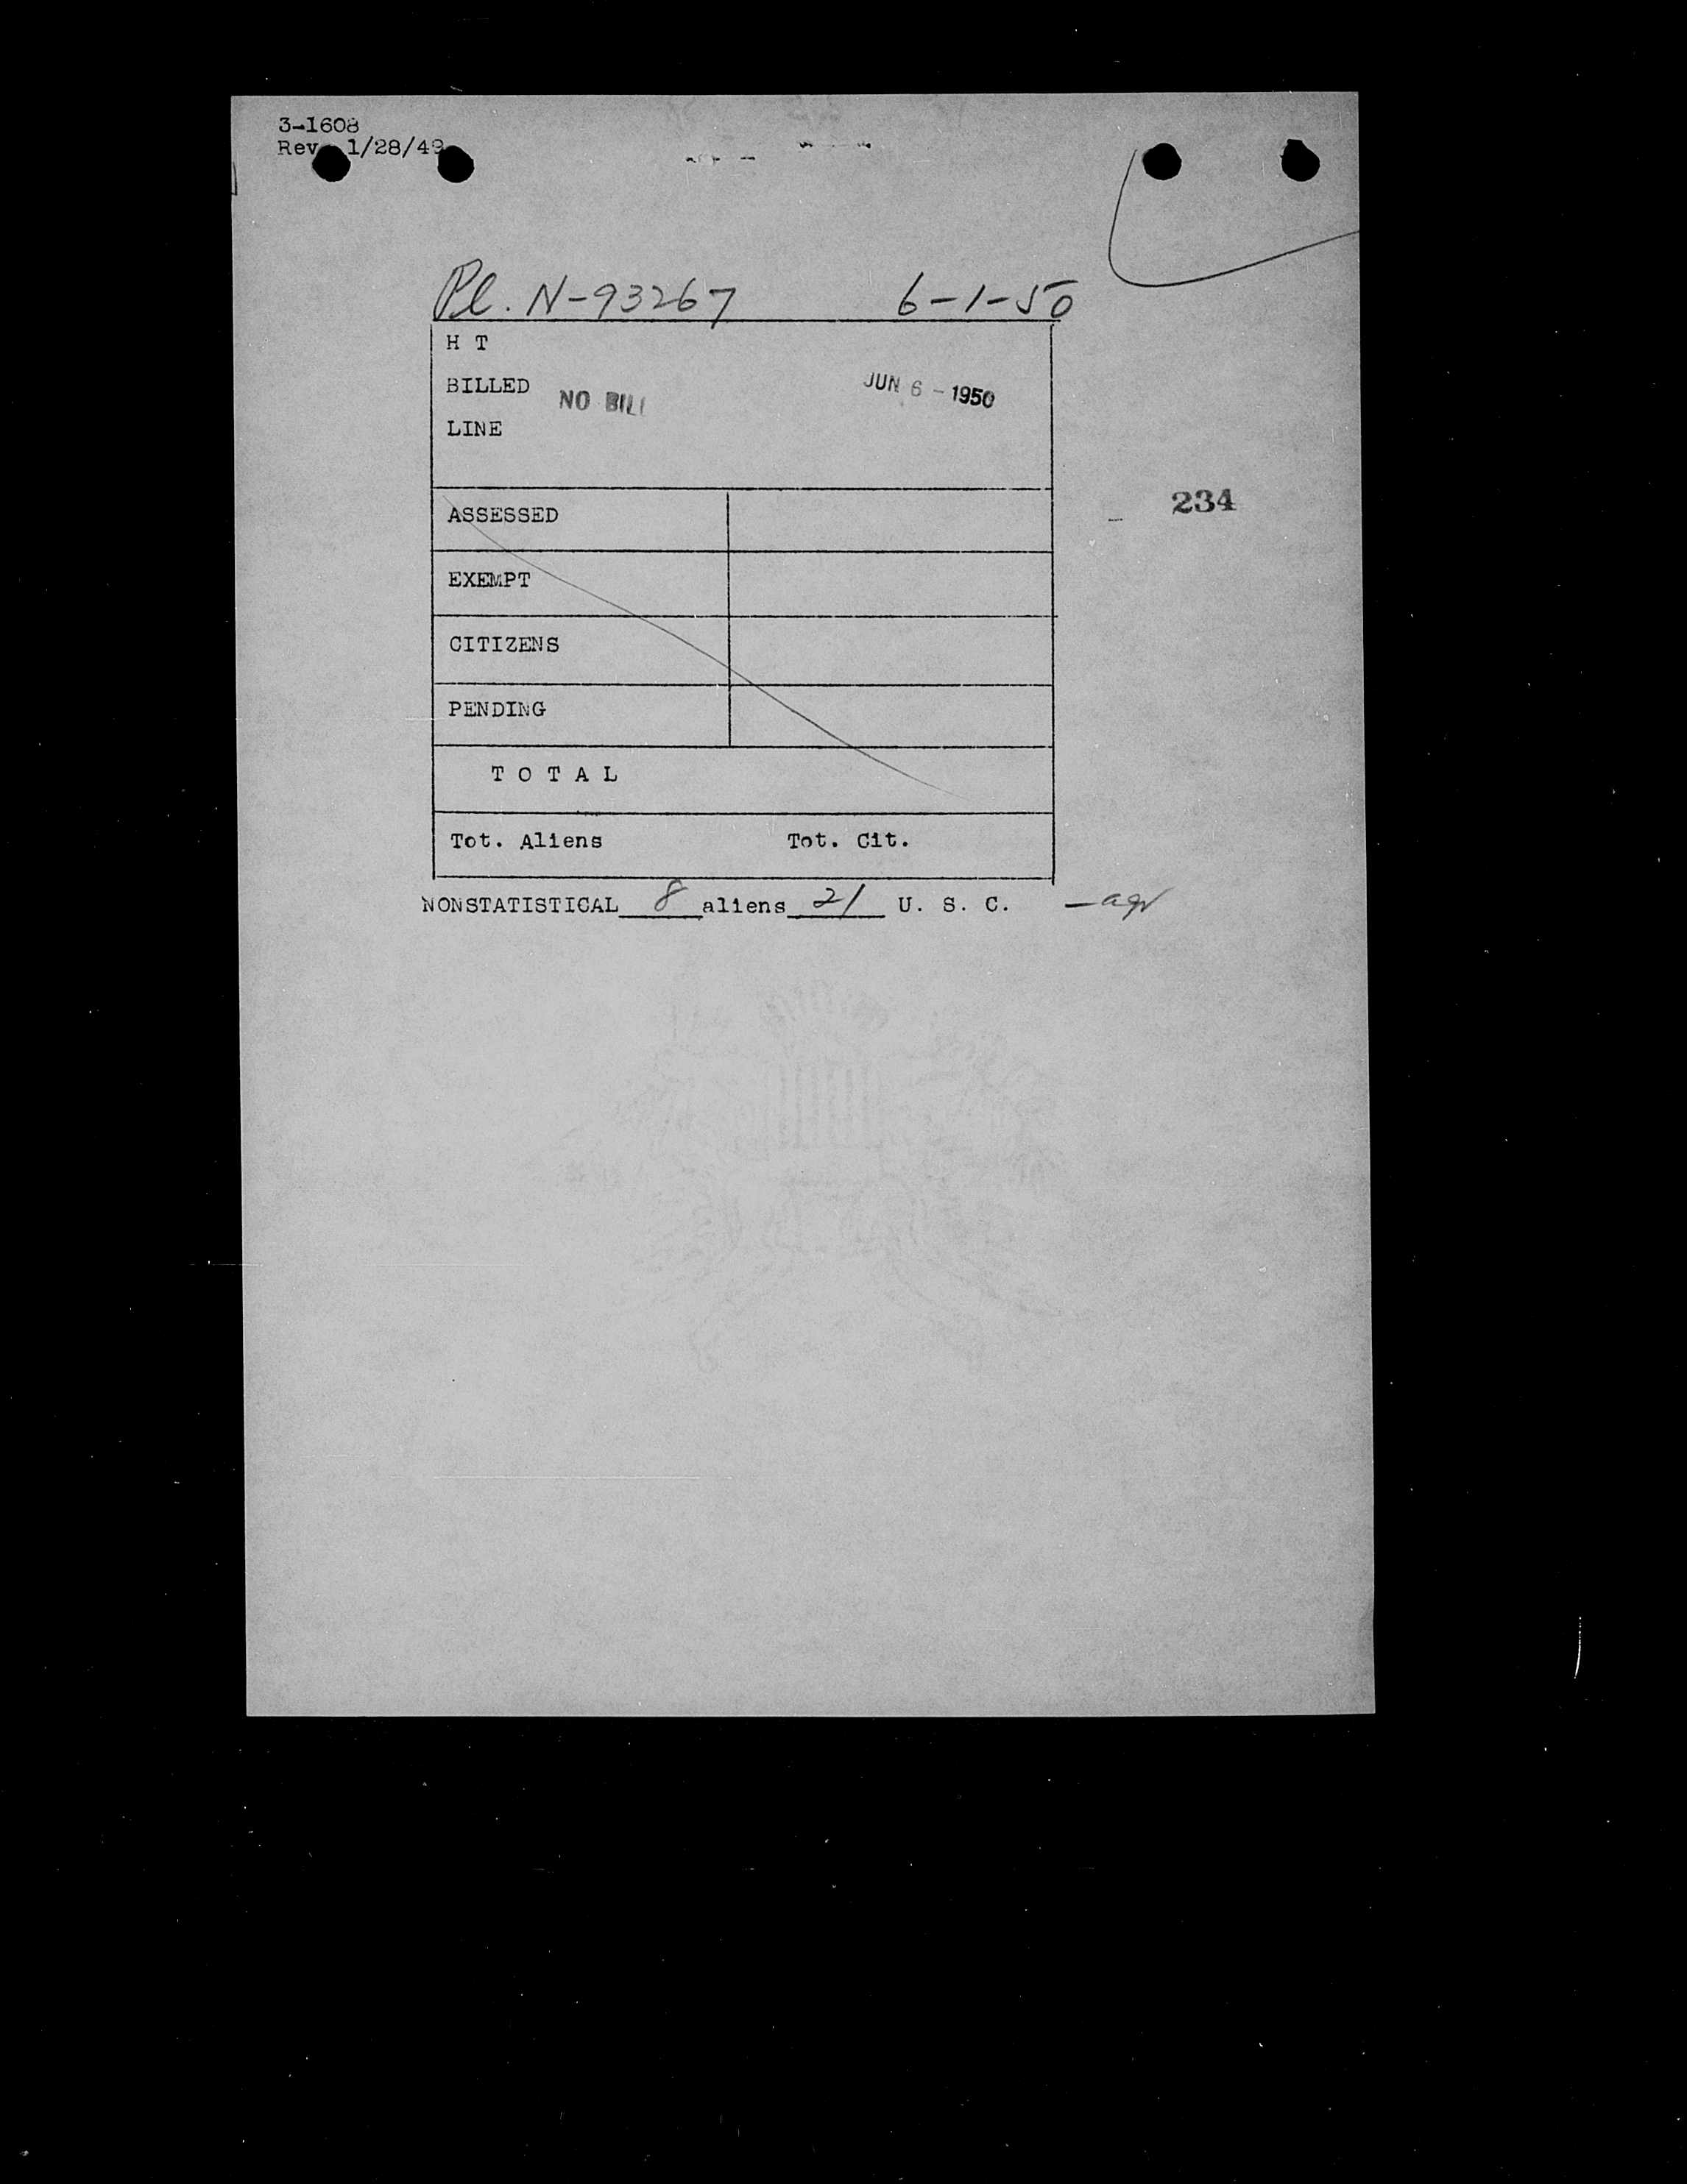 3-1608
Rev. 1/28/49
Pl. N-93267 6-1-50
H T
BILLED NO BILL JUN 6 - 1950
LINE
234
ASSESSED
EXEMPT
CITIZENS
PENDING
T O T A L
Tot. Aliens Tot. Cit.
NONSTATISTICAL 8 aliens 21 U. S. C.